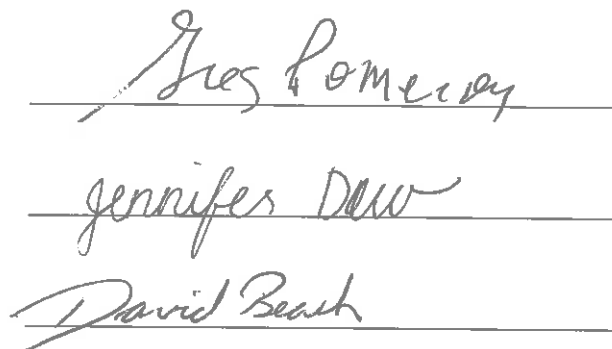 Greg Pomeroy
Jennifer
David Beach